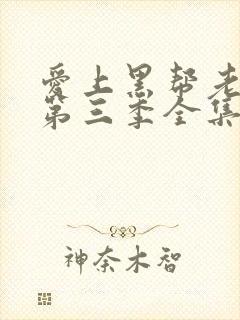 爱上黑帮老
第三季全集
神奈木智